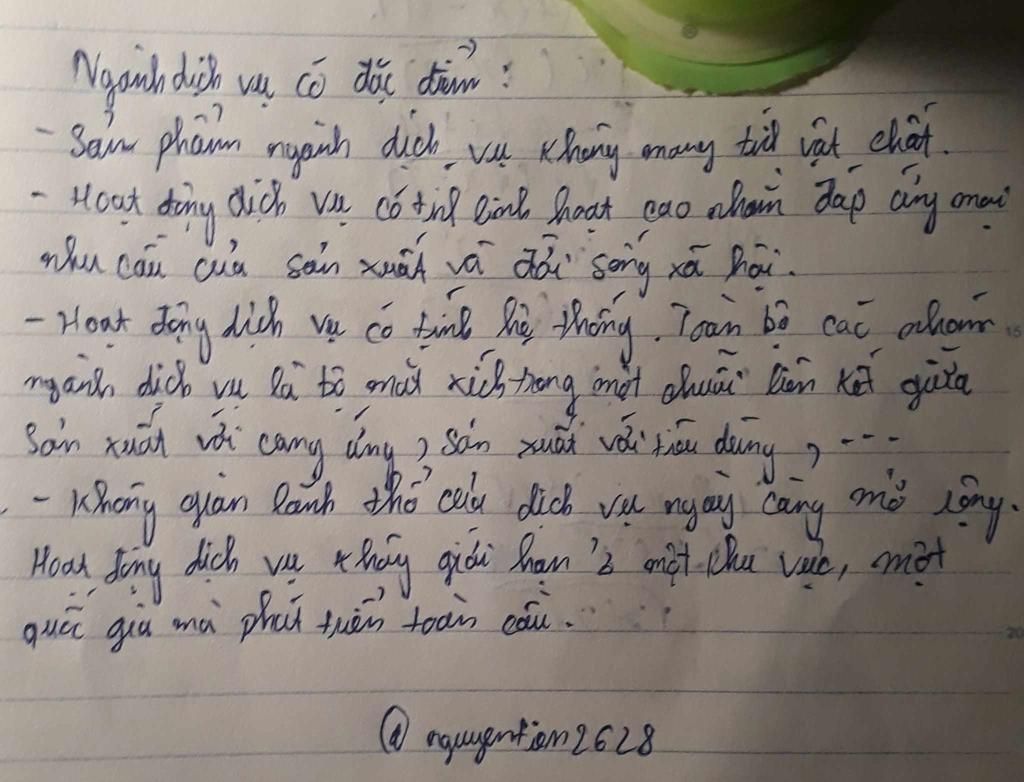 Ngành dịch vụ có đặc điểm :
- Sản phẩm ngành dịch vụ không mang tính vật chất.
- Hoạt động dịch vụ có tính linh hoạt cao nhằm đáp ứng mọi
nhu cầu của sản xuất và đời sống xã hội.
- Hoạt động dịch vụ có tính hệ thống. Toàn bộ các nhóm
ngành dịch vụ là bộ mắt xích trong một chuỗi liên kết giữa
sản xuất với cung ứng, sản xuất với tiêu dùng, ----
- Không gian lãnh thổ của dịch vụ ngày càng mở rộng.
Hoạt động dịch vụ không giới hạn ở một khu vực, một
quốc gia mà phát triển toàn cầu.
@nguyentien2628
15
20